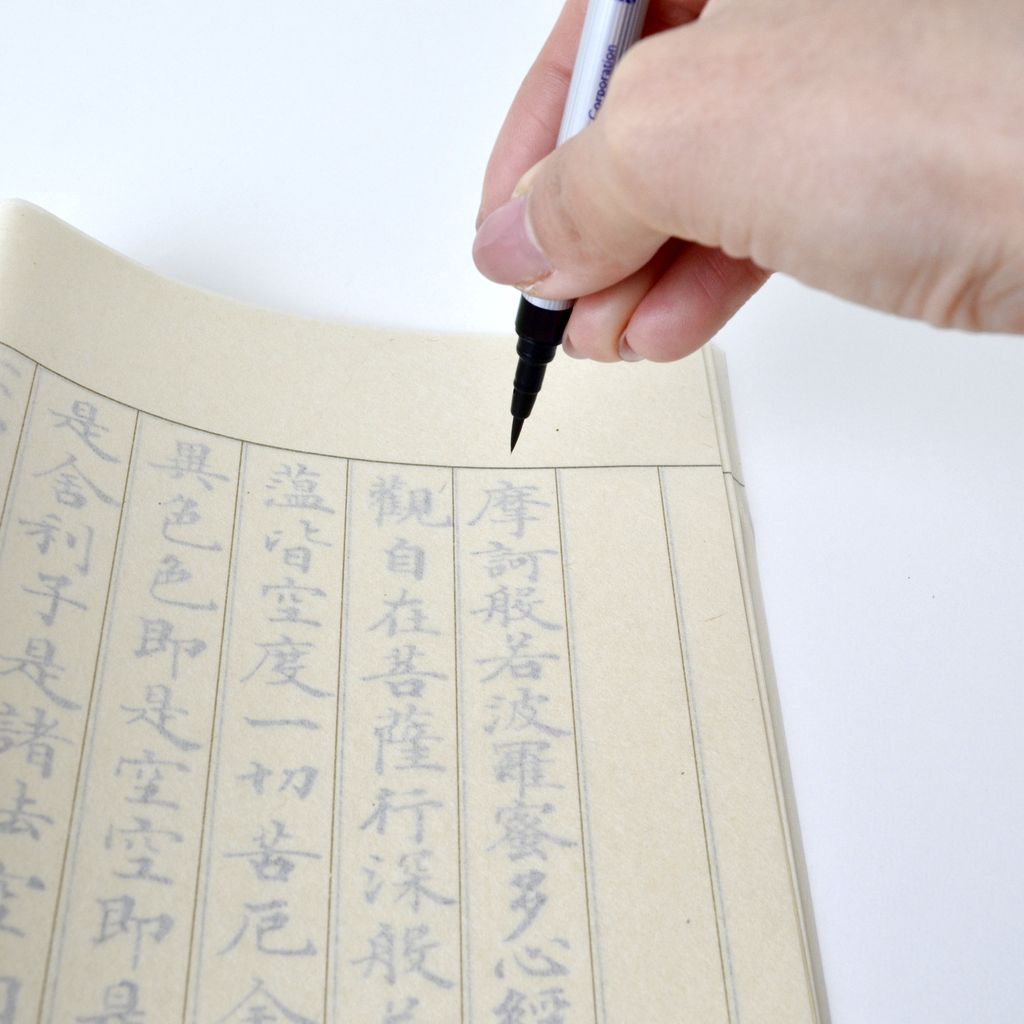 Corporation
摩訶般若波羅蜜多心經
觀自在菩薩行深般若
蘊皆空度一切苦厄舍
異色色即是空空即是
是舍利子是諸法空相